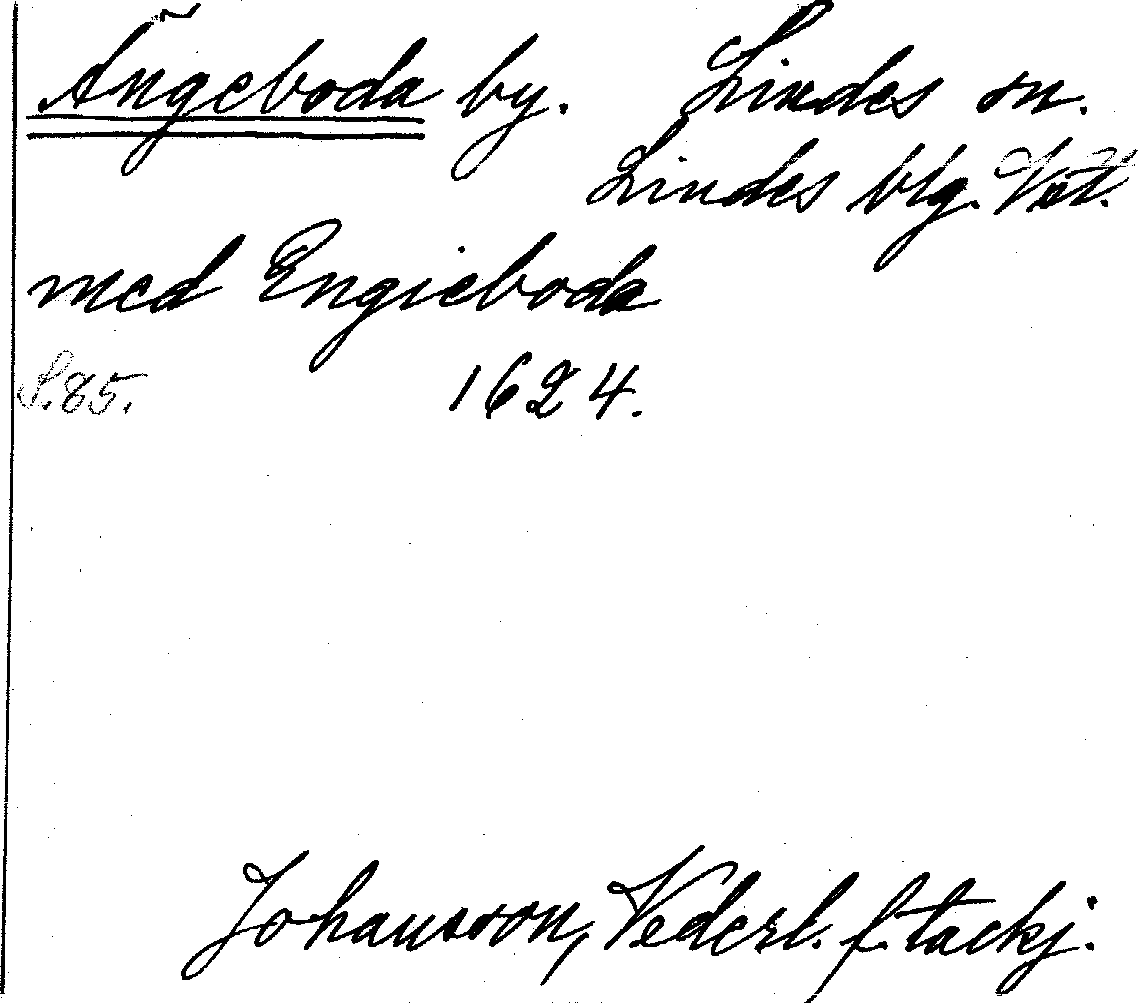 Ängeboda by. Lindes sn.
Lindes blg. Vstl.
med Engieboda
S.85. 1624.
Johansson, Vederl. f. tackj.